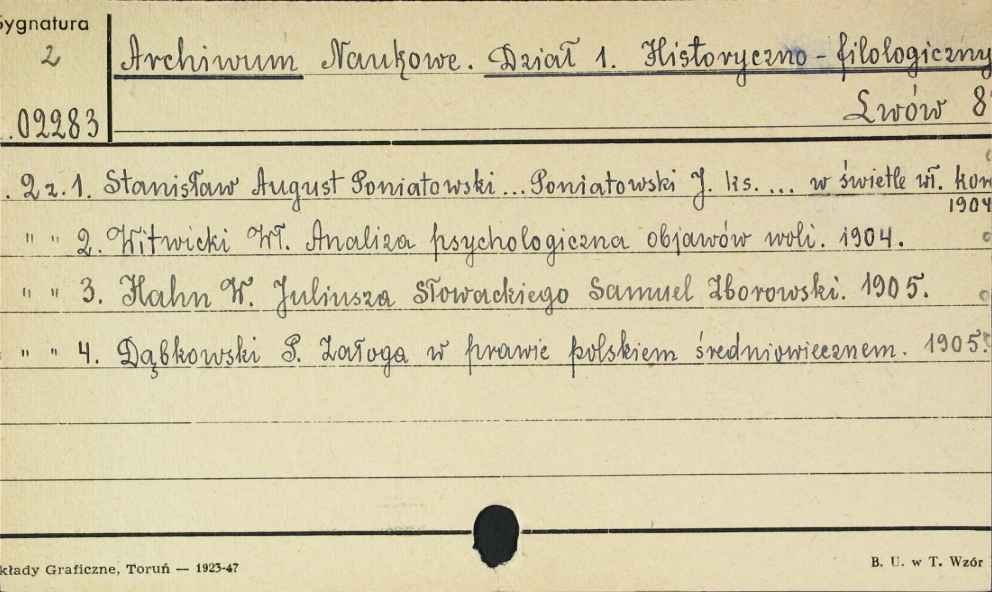 Sygnatura
2
.02283
Archiwum Naukowe. Dział 1. Historyczno-filologiczny
Lwów 8°
. 2 z. 1. Stanisław August Poniatowski ... Poniatowski J. ks. ... w świetle wł. kor
1904
" " 2. Witwicki Wł. Analiza psychologiczna objawów woli. 1904.
" " 3. Hahn W. Juliusza Słowackiego Samuel Zborowski. 1905.
" " 4. Dąbkowski P. Załoga w prawie polskiem średniowiecznem. 1905.
kłady Graficzne, Toruń — 1923-47
B. U. w T. Wzór